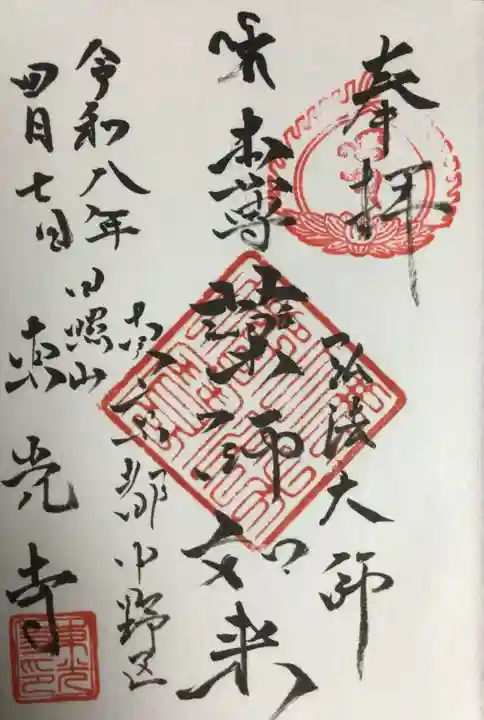 奉拝
弘法大師
本尊
薬師如来
東京都中野区
令和八年
四月七日
日照山
東光寺